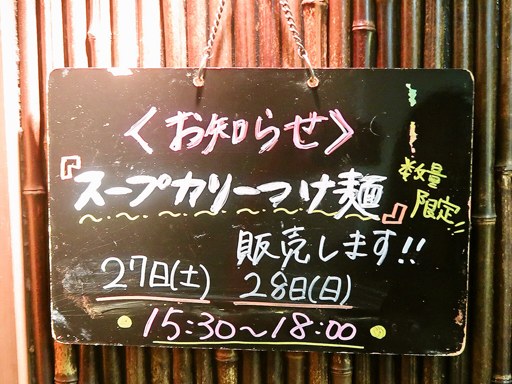 〈お知らせ〉
『スープカリーつけ麺』
数量
限定!!
販売します!!
27日(土) 28日(日)
15:30〜18:00